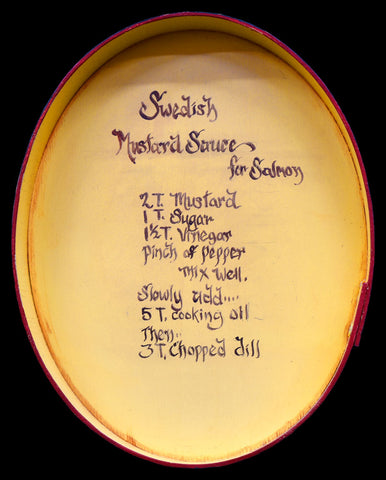 Swedish
Mustard Sauce
for Salmon
2 T. Mustard
1 T. Sugar
1½ T. Vinegar
pinch of pepper
mix well.
slowly add....
5 T. cooking oil
Then..
3 T. Chopped dill